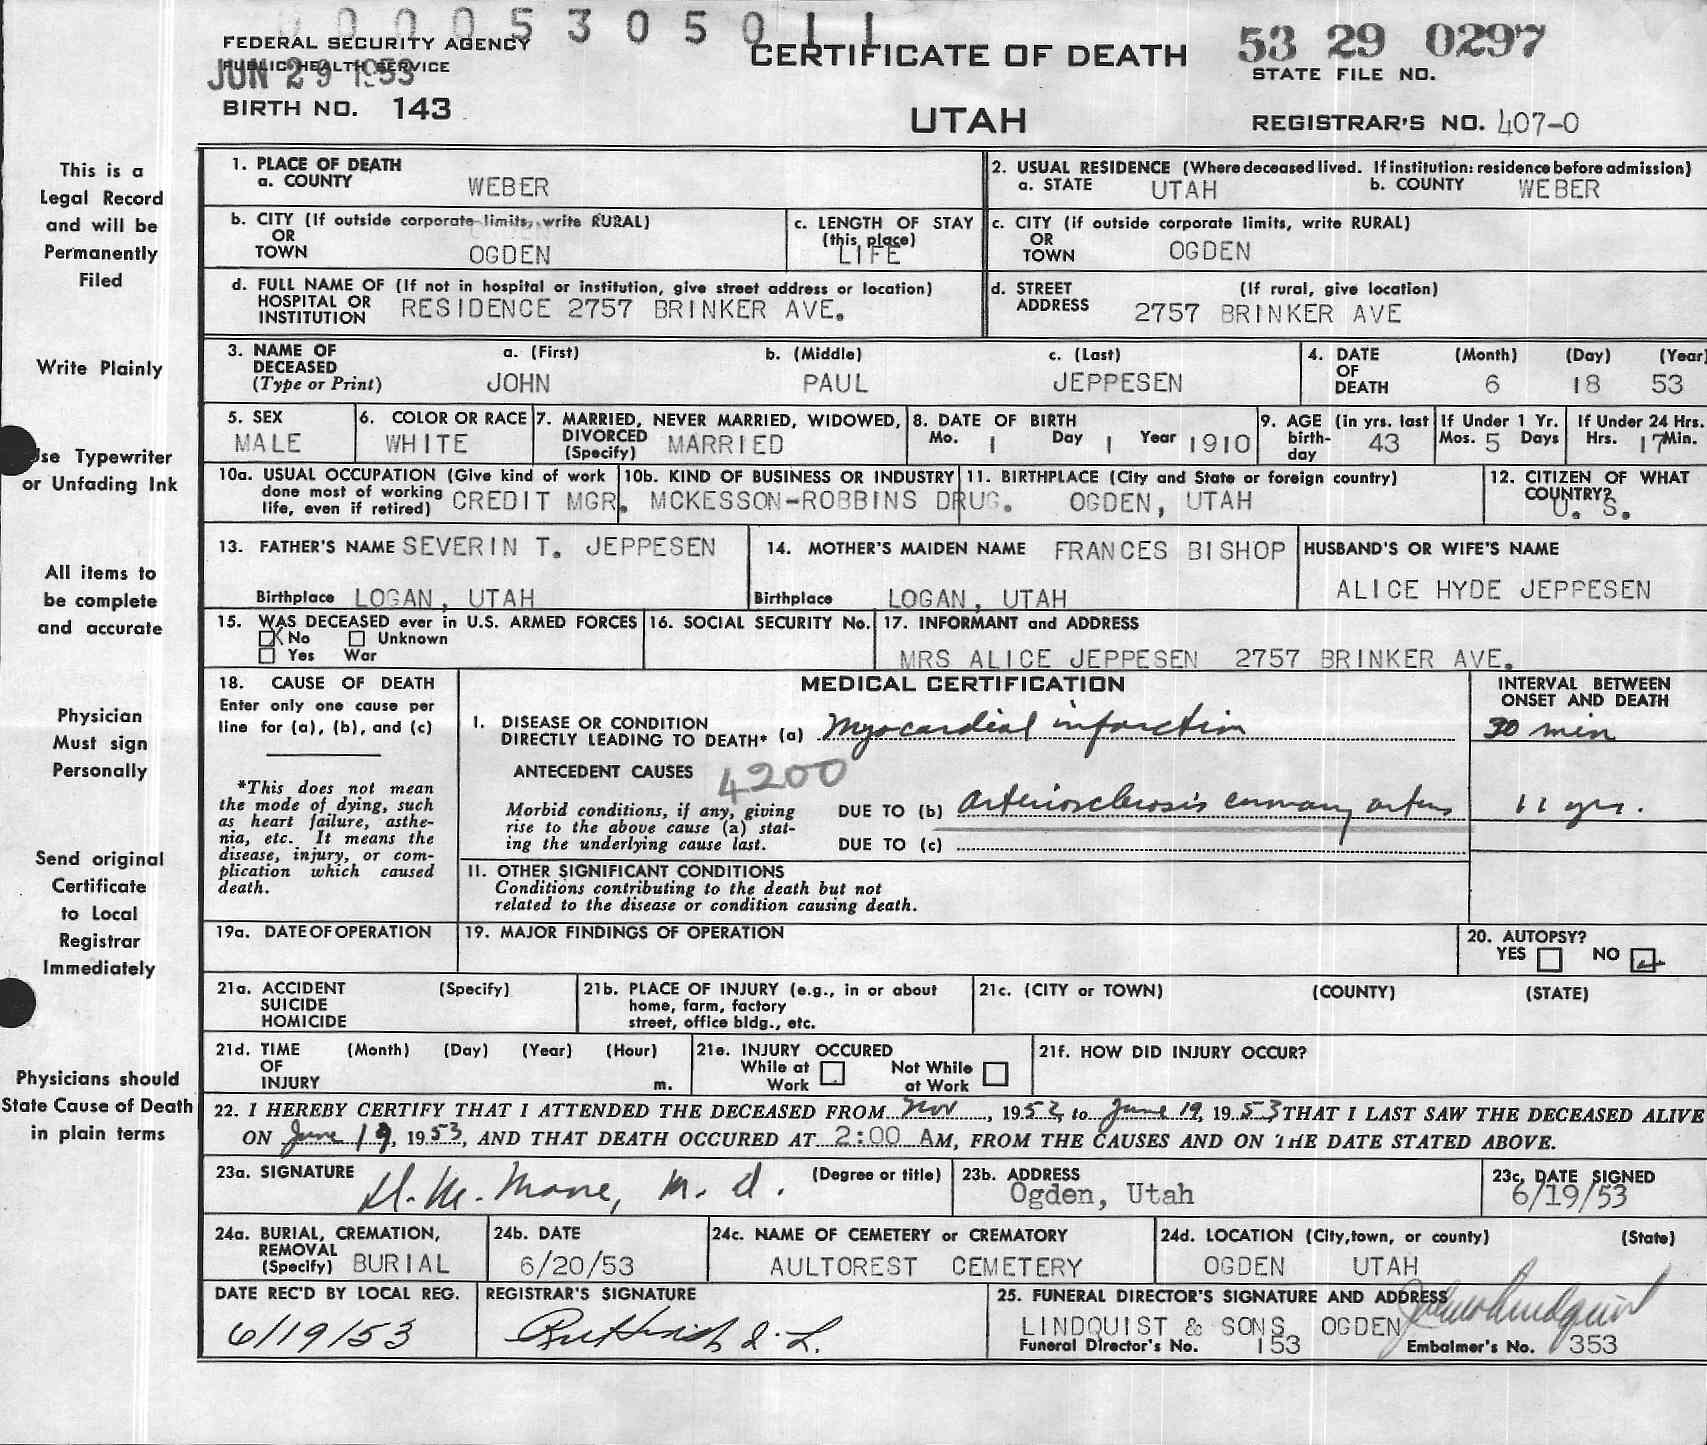 0000530501 1
FEDERAL SECURITY AGENCY
PUBLIC HEALTH SERVICE
JUN 29 1953
BIRTH NO. 143
CERTIFICATE OF DEATH
UTAH
53 29 0297
STATE FILE NO.
REGISTRAR'S NO. 407-0
This is a
Legal Record
and will be
Permanently
Filed
Write Plainly
Use Typewriter
or Unfading Ink
All items to
be complete
and accurate
Physician
Must sign
Personally
Send original
Certificate
to Local
Registrar
Immediately
Physicians should
State Cause of Death
in plain terms
1. PLACE OF DEATH
a. COUNTY WEBER
2. USUAL RESIDENCE (Where deceased lived. If institution: residence before admission)
a. STATE UTAH b. COUNTY WEBER
b. CITY (If outside corporate limits, write RURAL)
OR
TOWN OGDEN
c. LENGTH OF STAY
(this place)
LIFE
c. CITY (if outside corporate limits, write RURAL)
OR
TOWN OGDEN
d. FULL NAME OF (If not in hospital or institution, give street address or location)
HOSPITAL OR
INSTITUTION RESIDENCE 2757 BRINKER AVE.
d. STREET (If rural, give location)
ADDRESS 2757 BRINKER AVE
3. NAME OF a. (First) b. (Middle) c. (Last)
DECEASED
(Type or Print) JOHN PAUL JEPPESEN
4. DATE (Month) (Day) (Year)
OF
DEATH 6 18 53
5. SEX
MALE
6. COLOR OR RACE
WHITE
7. MARRIED, NEVER MARRIED, WIDOWED,
DIVORCED
(Specify) MARRIED
8. DATE OF BIRTH
Mo. 1 Day 1 Year 1910
9. AGE (in yrs. last
birth-
day 43
If Under 1 Yr.
Mos. 5 Days
If Under 24 Hrs.
Hrs. 17 Min.
10a. USUAL OCCUPATION (Give kind of work
done most of working
life, even if retired) CREDIT MGR.
10b. KIND OF BUSINESS OR INDUSTRY
MCKESSON-ROBBINS DRUG.
11. BIRTHPLACE (City and State or foreign country)
OGDEN, UTAH
12. CITIZEN OF WHAT
COUNTRY?
U. S.
13. FATHER'S NAME SEVERIN T. JEPPESEN
Birthplace LOGAN, UTAH
14. MOTHER'S MAIDEN NAME FRANCES BISHOP
Birthplace LOGAN, UTAH
HUSBAND'S OR WIFE'S NAME
ALICE HYDE JEPPESEN
15. WAS DECEASED ever in U.S. ARMED FORCES
X No Unknown
Yes War
16. SOCIAL SECURITY No.
17. INFORMANT and ADDRESS
MRS ALICE JEPPESEN 2757 BRINKER AVE.
18. CAUSE OF DEATH
Enter only one cause per
line for (a), (b), and (c)
*This does not mean
the mode of dying, such
as heart failure, asthe-
nia, etc. It means the
disease, injury, or com-
plication which caused
death.
MEDICAL CERTIFICATION
INTERVAL BETWEEN
ONSET AND DEATH
I. DISEASE OR CONDITION
DIRECTLY LEADING TO DEATH* (a) Myocardial infarction 30 min
ANTECEDENT CAUSES 4200
Morbid conditions, if any, giving
rise to the above cause (a) stat-
ing the underlying cause last.
DUE TO (b) arteriosclerosis coronary artery 11 yrs.
DUE TO (c)
II. OTHER SIGNIFICANT CONDITIONS
Conditions contributing to the death but not
related to the disease or condition causing death.
19a. DATE OF OPERATION
19. MAJOR FINDINGS OF OPERATION
20. AUTOPSY?
YES NO
21a. ACCIDENT (Specify)
SUICIDE
HOMICIDE
21b. PLACE OF INJURY (e.g., in or about
home, farm, factory
street, office bldg., etc.
21c. (CITY or TOWN) (COUNTY) (STATE)
21d. TIME (Month) (Day) (Year) (Hour)
OF
INJURY m.
21e. INJURY OCCURED
While at Work
Not While at Work
21f. HOW DID INJURY OCCUR?
22. I HEREBY CERTIFY THAT I ATTENDED THE DECEASED FROM Nov, 1952, to June 19, 1953, THAT I LAST SAW THE DECEASED ALIVE
ON June 19, 1953, AND THAT DEATH OCCURED AT 2:00 AM, FROM THE CAUSES AND ON THE DATE STATED ABOVE.
23a. SIGNATURE (Degree or title)
M. D.
23b. ADDRESS
Ogden, Utah
23c. DATE SIGNED
6/19/53
24a. BURIAL, CREMATION,
REMOVAL
(Specify) BURIAL
24b. DATE
6/20/53
24c. NAME OF CEMETERY or CREMATORY
AULTOREST CEMETERY
24d. LOCATION (City, town, or county) (State)
OGDEN UTAH
DATE REC'D BY LOCAL REG.
6/19/53
REGISTRAR'S SIGNATURE
25. FUNERAL DIRECTOR'S SIGNATURE AND ADDRESS
LINDQUIST & SONS, OGDEN
Funeral Director's No. 153 Embalmer's No. 353